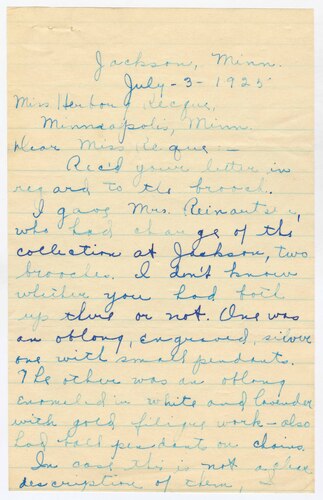 Jackson, Minn.
July-3-1925
Miss Herborg Reque,
Minneapolis, Minn.
Dear Miss Reque:-
Rec'd your letter in
regard to the brooch.
I gave Mrs. Reinartsen,
who had charge of the
collection at Jackson, two
brooches. I don't know
whether you had both
up there or not. One was
an oblong, engraved, silver
one with small pendants.
The other was an oblong
enameled in white and lavender
with gold filigre work-also
had ball pendant on chains.
In case this is not a clear
description of them, I